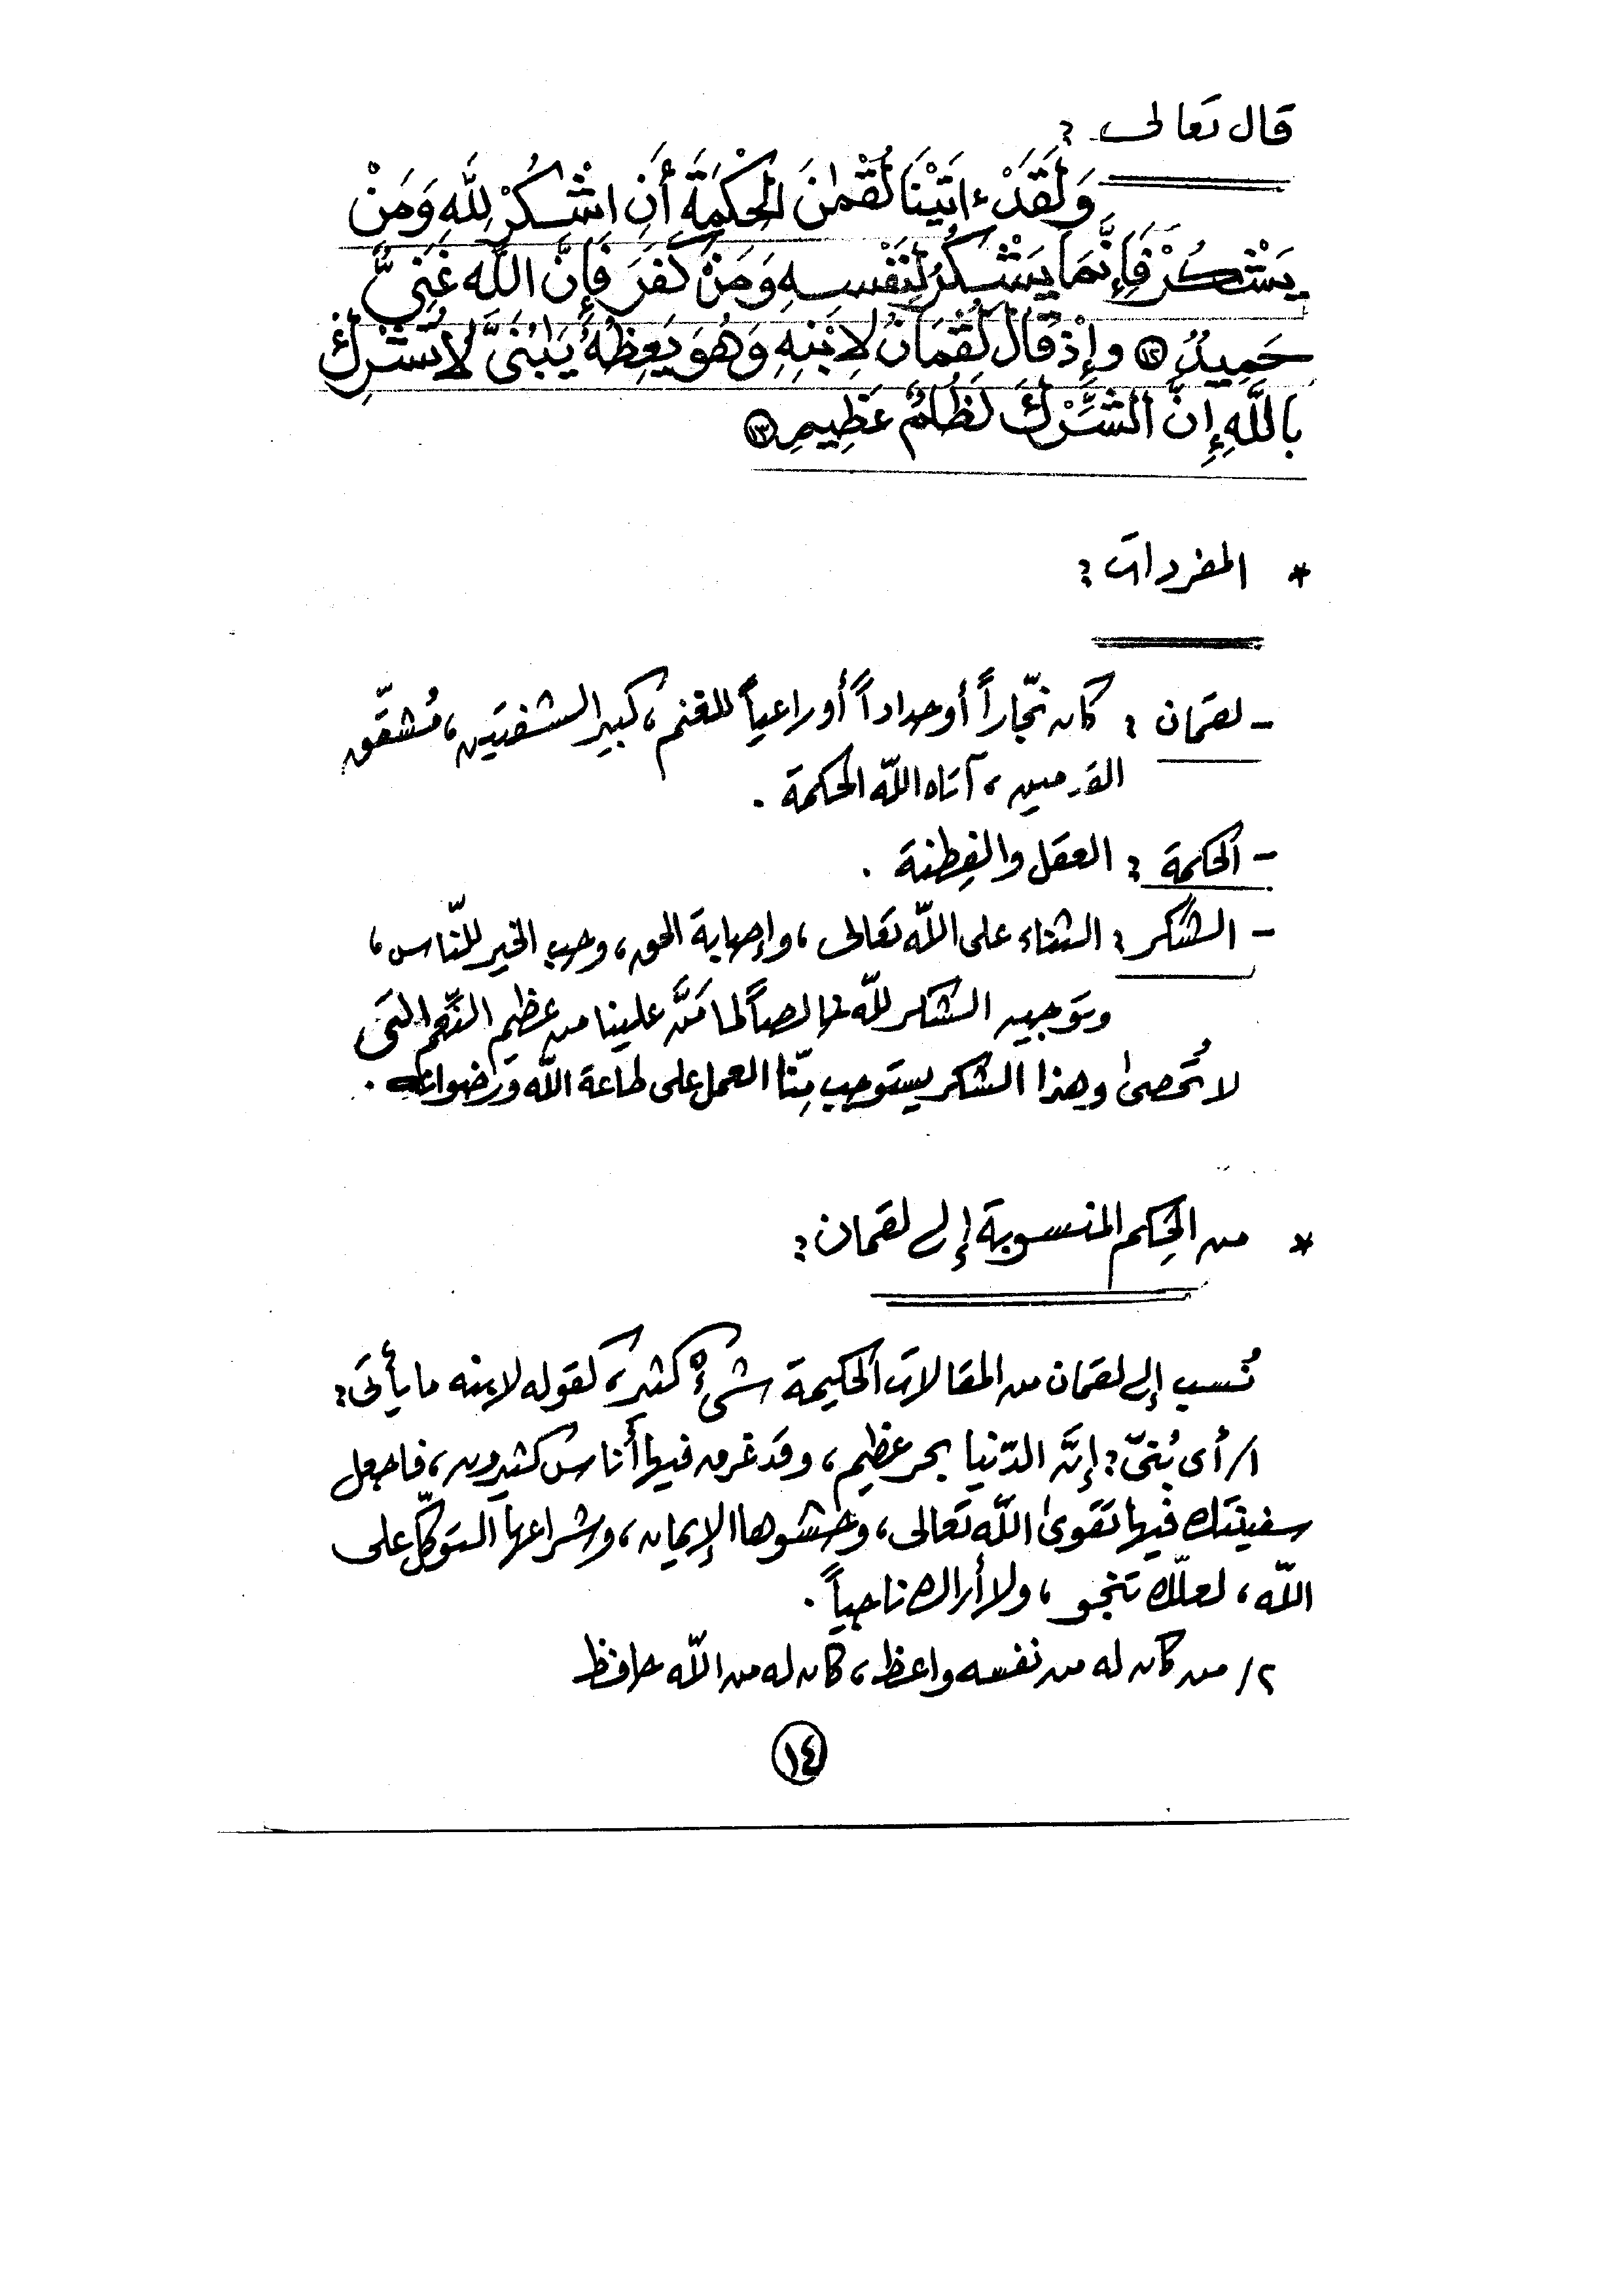 قال تعالى :
وَلَقَدْ ءاتَيْنَا لُقْمٰنَ الْحِكْمَةَ أَنِ اشْكُرْ لِلَّهِ وَمَنْ
يَشْكُرْ فَإِنَّمَا يَشْكُرُ لِنَفْسِهِ وَمَنْ كَفَرَ فَإِنَّ اللَّهَ غَنِيٌّ
حَمِيدٌ (١٢) وإِذْ قَالَ لُقْمَانُ لِابْنِهِ وَهُوَ يَعِظُهُ يَبُنَىَّ لَا تُشْرِكْ
بِاللَّهِ إِنَّ الشِّرْكَ لَظُلْمٌ عَظِيمٌ (١٣)
* المفردات :
- لقمان : كان نجّاراً أو حداداً أو راعياً للغنم، كبير الشفتين، مُشقَّق
القدمين، آتاه اللّه الحكمة .
- الحكمة : العقل والفِطنة .
- الشكر : الثناء على اللّه تعالى، وإصابة الحق، وحب الخير للنّاس،
وتوجيه الشكر للّه خالصاً لما مَنَّ علينا من عظيم النِّعم التي
لا تُحصىٰ وهذا الشكر يستوجب مِنّا العمل على طاعة اللّه ورضوانه .
* من الحِكم المنسوبة إلى لقمان :
نُسب إلى لقمان من المقالات الحكيمة شىءٌ كثير، كقوله لابنه ما يأتى :
١/ أى بُنىّ : إنَّ الدّنيا بحر عظيم، وقد غرق فيها أناس كثيرون، فاجعل
سفينتك فيها تقوىٰ اللّه تعالى، وحشوها الإيمان، وشراعها التوكّل على
اللّه، لعلّك تنجو، ولا أراك ناجياً .
٢/ من كان له من نفسه واعظ، كان له من اللّه حافظ
١٤